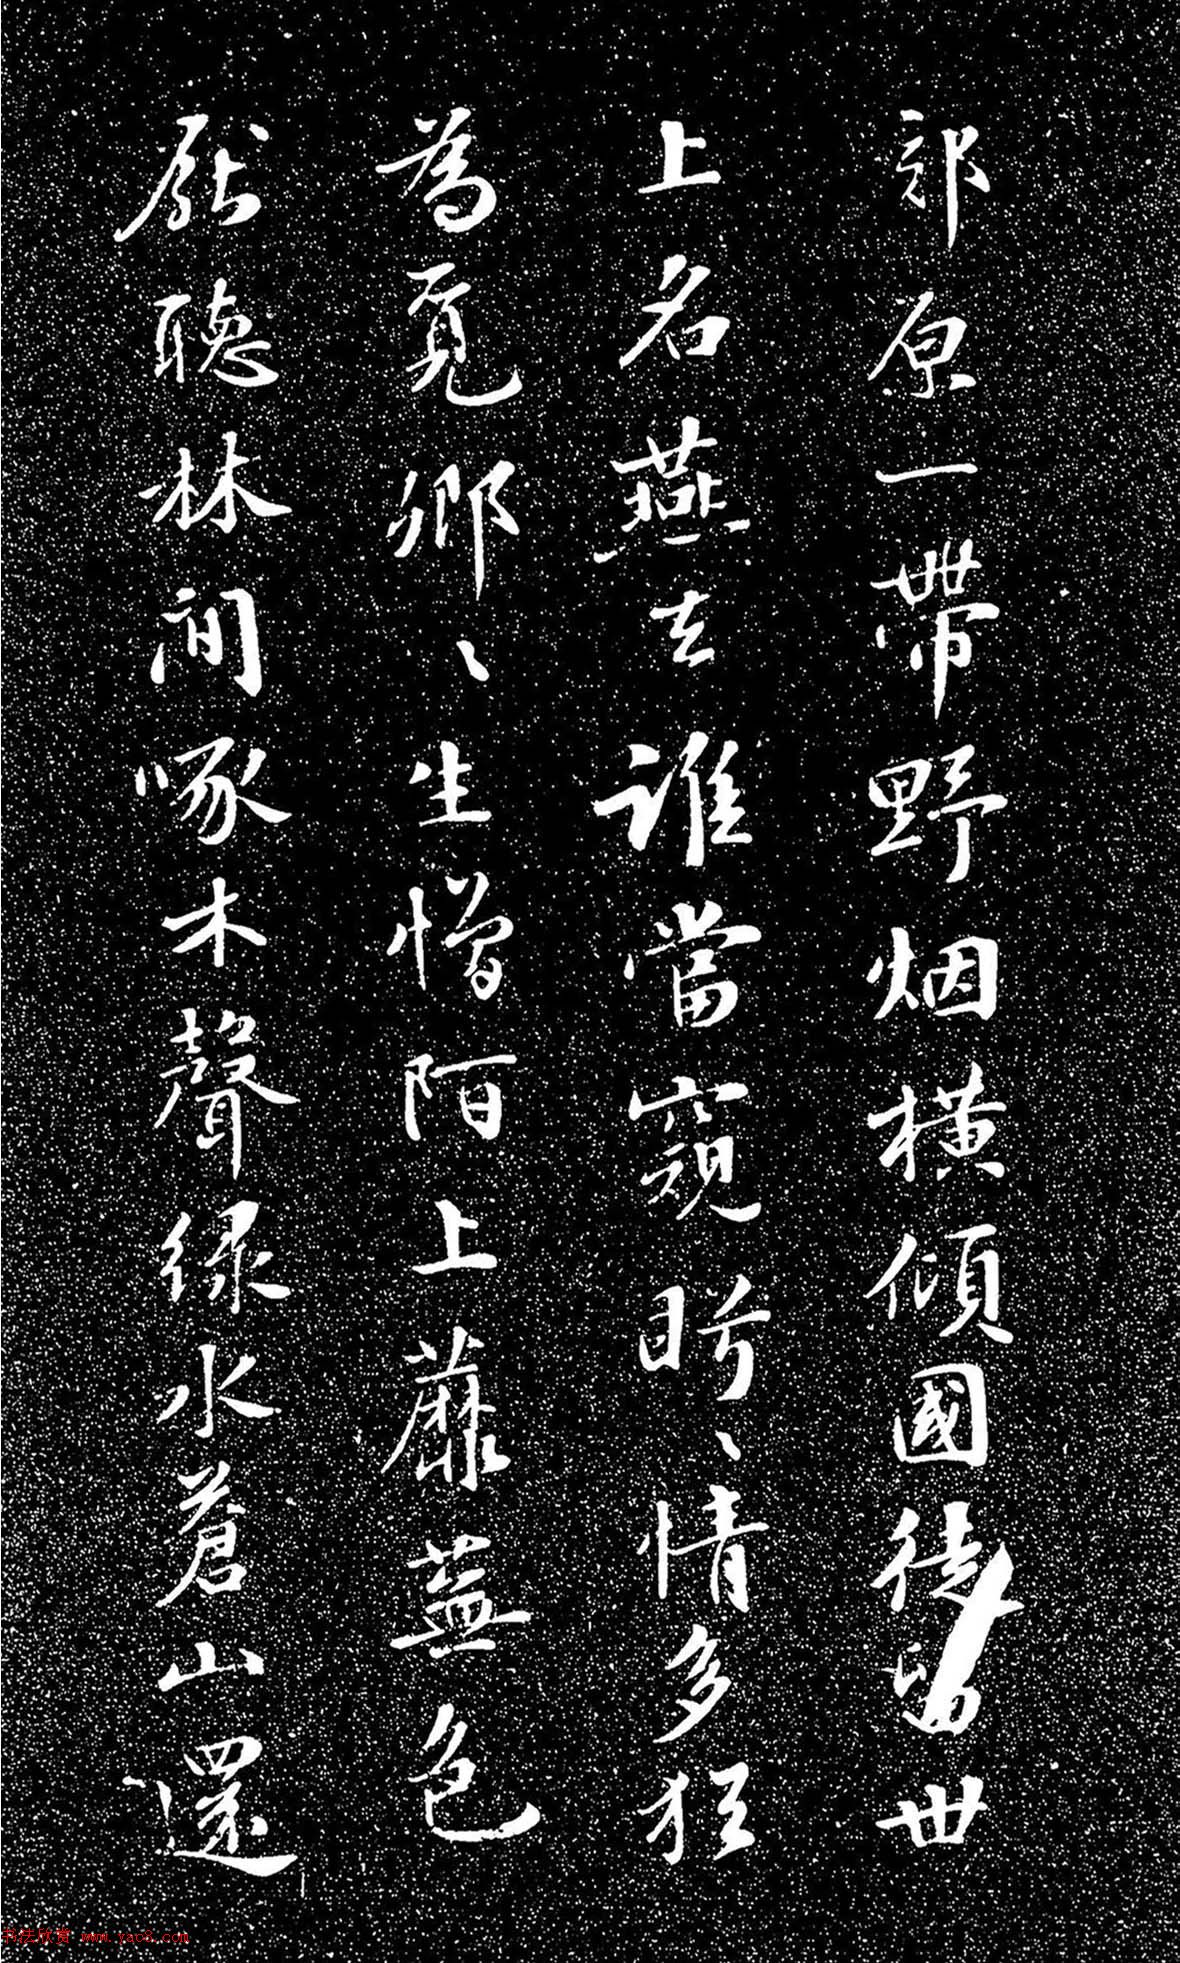 郊原一帶野烟橫傾國徒留世
上名燕去誰當窺盻〻情多狂
為覓卿〻生憎陌上蘼蕪色
厭聽林間啄木聲緑水蒼山還
书法欣赏 www.yac8.com